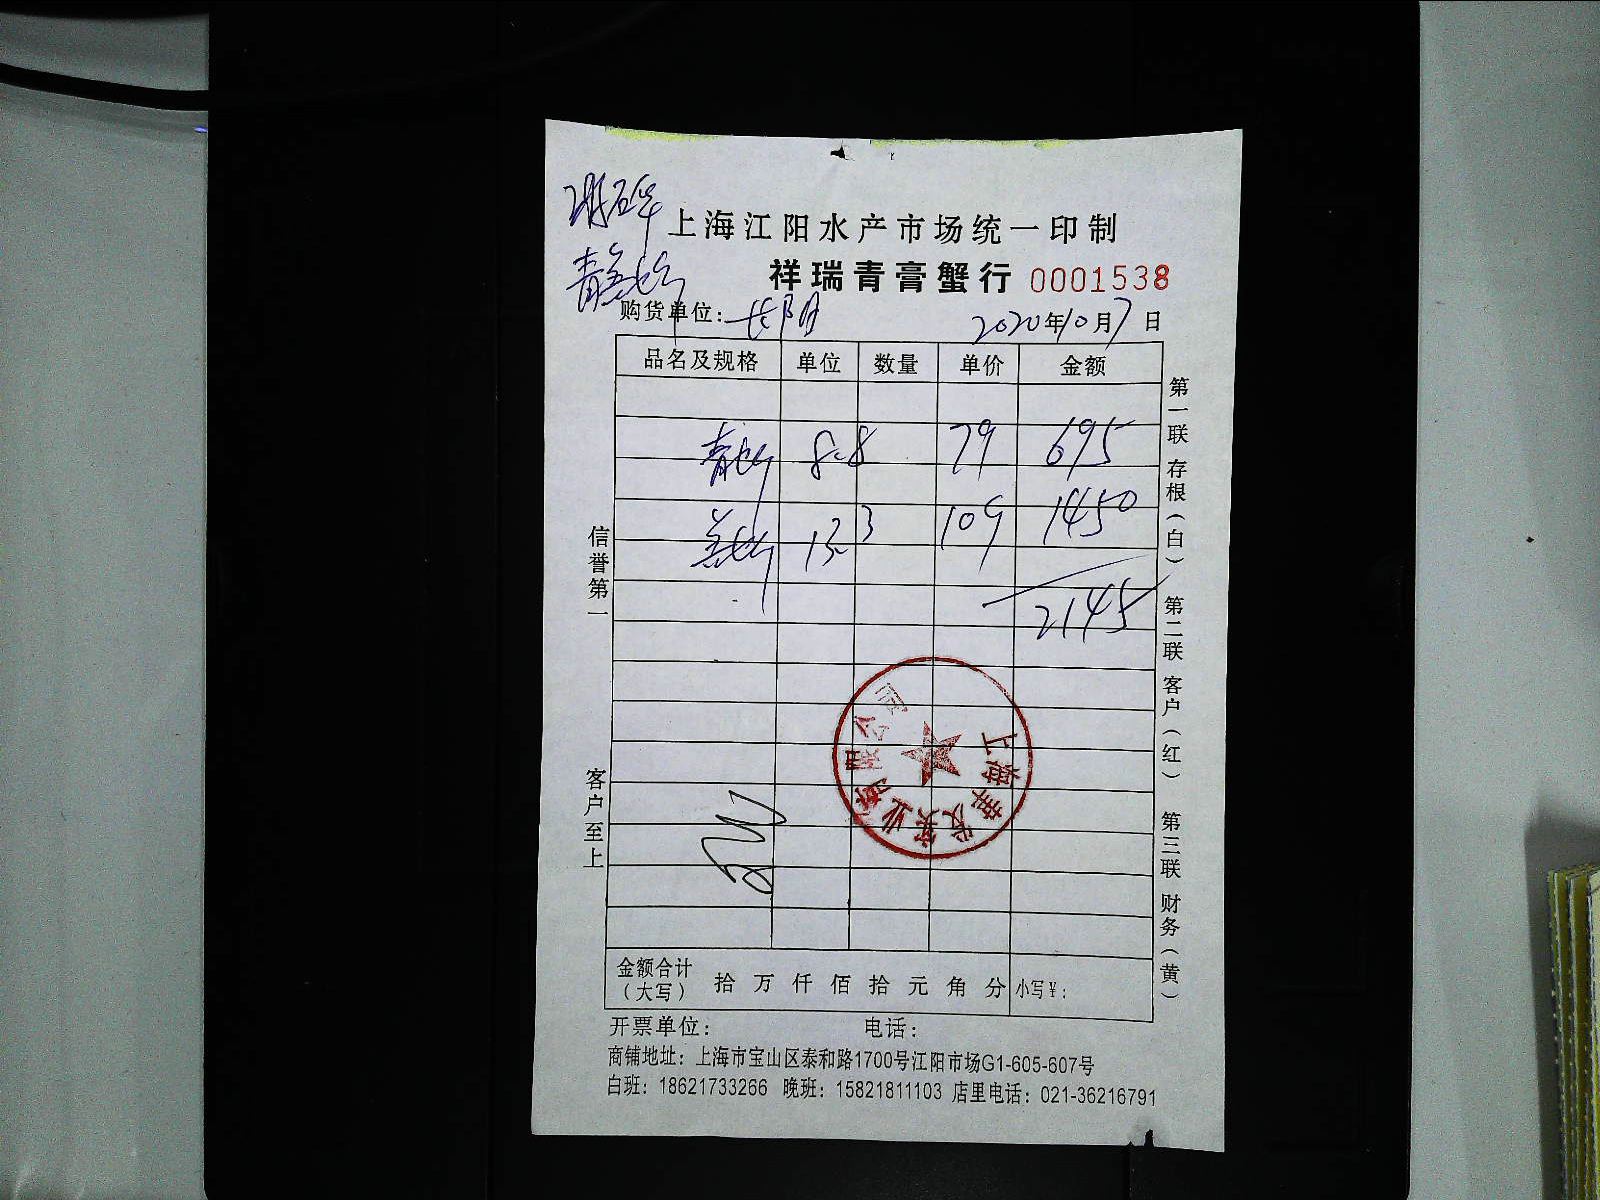 上海江阳水产市场统一印制
祥瑞青膏蟹行 0001538
购货单位：长阳 2020年10月7日
品名及规格 单位 数量 单价 金额
青 8.8 79 695
13.3 109 1450
2145
信誉第一
客户至上
第一联 存根（白） 第二联 客户（红） 第三联 财务（黄）
上海 发实业有限公司
金额合计（大写） 拾 万 仟 佰 拾 元 角 分 小写￥：
开票单位： 电话：
商铺地址：上海市宝山区泰和路1700号江阳市场G1-605-607号
白班：18621733266 晚班：15821811103 店里电话：021-36216791